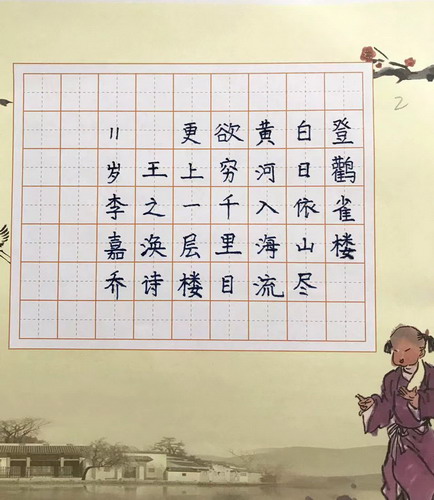 登鹳雀楼
白日依山尽
黄河入海流
欲穷千里目
更上一层楼
王之涣诗
11岁李嘉乔
2